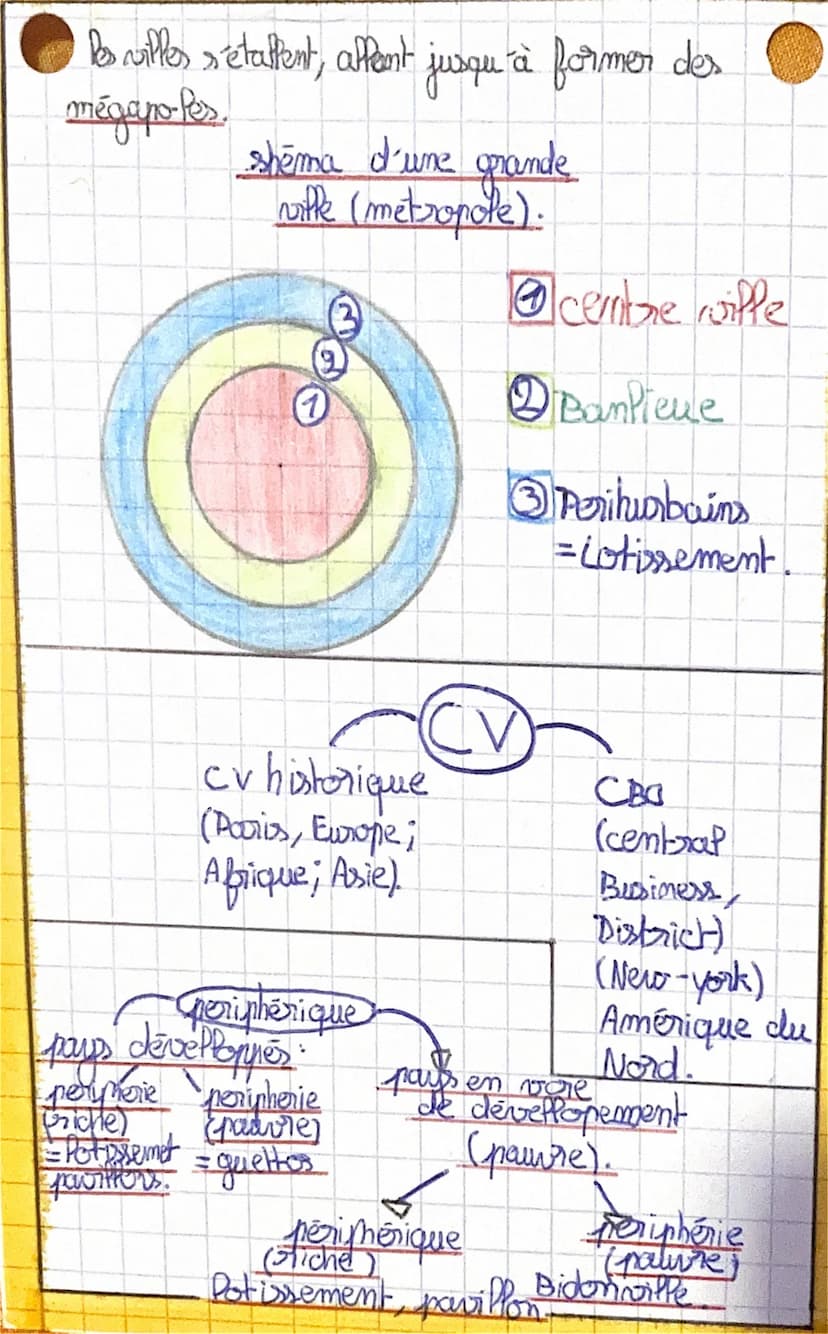 les villes s'étallent, allant jusqu'à former des
mégapo-les.
shéma d'une grande
ville (métropole).
3
2
1
① centre ville
② Banlieue
③ Perihurbains
= Lotissement.
CV
cv historique
(Paris, Europe;
Afrique; Asie).
CBD
(central
Business,
District)
(New-york)
Amérique du
Nord.
periphérique
pays dévelloppés:
peripherie
(riche)
= lotissemet
pavillons.
peripherie
(pauvre)
= guettos
pays en voie
de dévellopement
(pauvre).
périphérique
(riche)
lotissement, pavillon.
periphérie
(pauvre)
Bidonville.